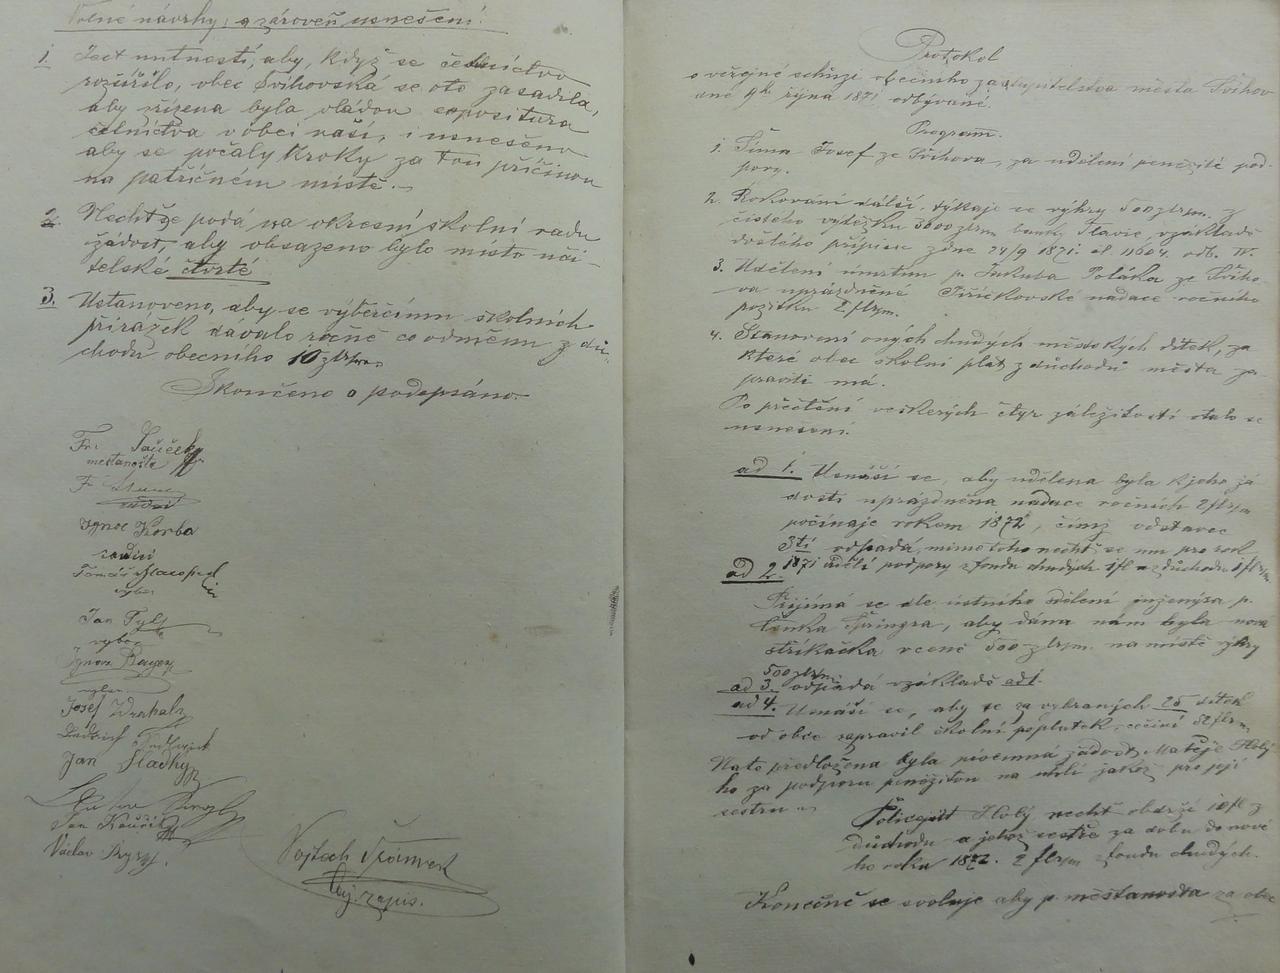 Volné návrhy, a zároveň usnešení.
1. Jest nutností, aby, když se četnictvo
rozšířilo, obec Švihovská se oto zasadila,
aby zřízena byla vládou expositura
četnictva v obci naší, i usnešeno
aby se počaly kroky za tou příčinou
na patřičném místě.
2. Nechť se podá na okresní školní radu
žádost, aby obsazeno bylo místo uči-
telské čtvrté
3. Ustanoveno, aby se výběrčímu školních
přirážek dávalo ročně co odměnu z dů-
chodu obecního 10 zlrm.
Skončeno a podepsáno.
Fr.
měšťanosta
F
radní
Ignac Korba
radní
Tomáš
výbor
Jan Tyl
výbor
Ignac Bayer
výbor
Josef
Jan Sladký
Jan
Václav
Vojtěch
zapis.
Protokol
o veřejné schůzi obecního zastupitelstva města Švihov
dne 4ho října 1871 odbývané.
Program.
1. Šima Josef ze Švihova, za udělení peněžité pod-
pory.
2. Rokování další, týkaje se výhry 500 zlrm. z
čistého výtěžku 3600 zlrm banky Slavie, vzákladě
došlého přípisu zdne 24/9 1871. čl. 11664. odb. IV.
3. Udělení úmrtím p. Jakuba Poláka ze Šviho-
va uprázdněné Jiříčkovské nadace ročního
požitku 2 flrm.
4. Stanovení oných chudých městských dítek, za
které obec školní plat z důchodů města za-
praviti má.
Po přečtění veškerých čtyr záležitostí stalo se
usnešení.
ad 1. Usnáší se, aby udělena byla kjeho žá
dosti uprázdněna nadace ročních 2 flrm
počínaje rokem 1872, čímž odstavec
3tí odpadá, mimo toho nechť se mu pro rok
1871 udělí podpory zfondu chudých 1fl a z důchodu 1flrm.
ad 2.
Přijímá se dle ústního sdělení inženýra p.
Čeňka Špringra, aby dána nám byla nová
stříkačka vceně 500 zlrm. na místě výhry
500 zlrm.
ad 3. odpadá vzákladě ad 1.
ad 4. Usnáší se, aby se za vybraných 25 dítek
od obce zapravil školní poplatek, což činí flrm,
Nato předložena byla písemná žádost Matěje Holý
ho za podporu peněžitou na uhlí jakož pro její
sestru
Policajt Holý nechť obdrží 10fl z
důchodu a jehož sestře za dobu do nové
ho roku 1872. 2 flrm zfondu chudých.
Konečně se svoluje aby p. měšťanosta za obec